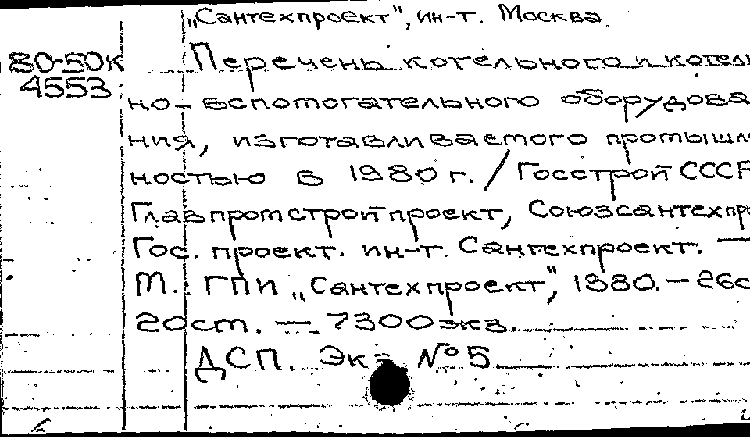 „Сантехпроект", ин-т. Москва.
80-50к
4553
Перечень котельного и котель
но-вспомогательного оборудова
ния, изготавливаемого промышлен
ностью в 1980 г. / Госстрой СССР
Главпромстройпроект, Союзсантехпр
Гос. проект. ин-т. Сантехпроект. —
М.: ГПИ „Сантехпроект", 1980. — 26с
20 cm. — 7300 экз.
ДСП. Экз №5